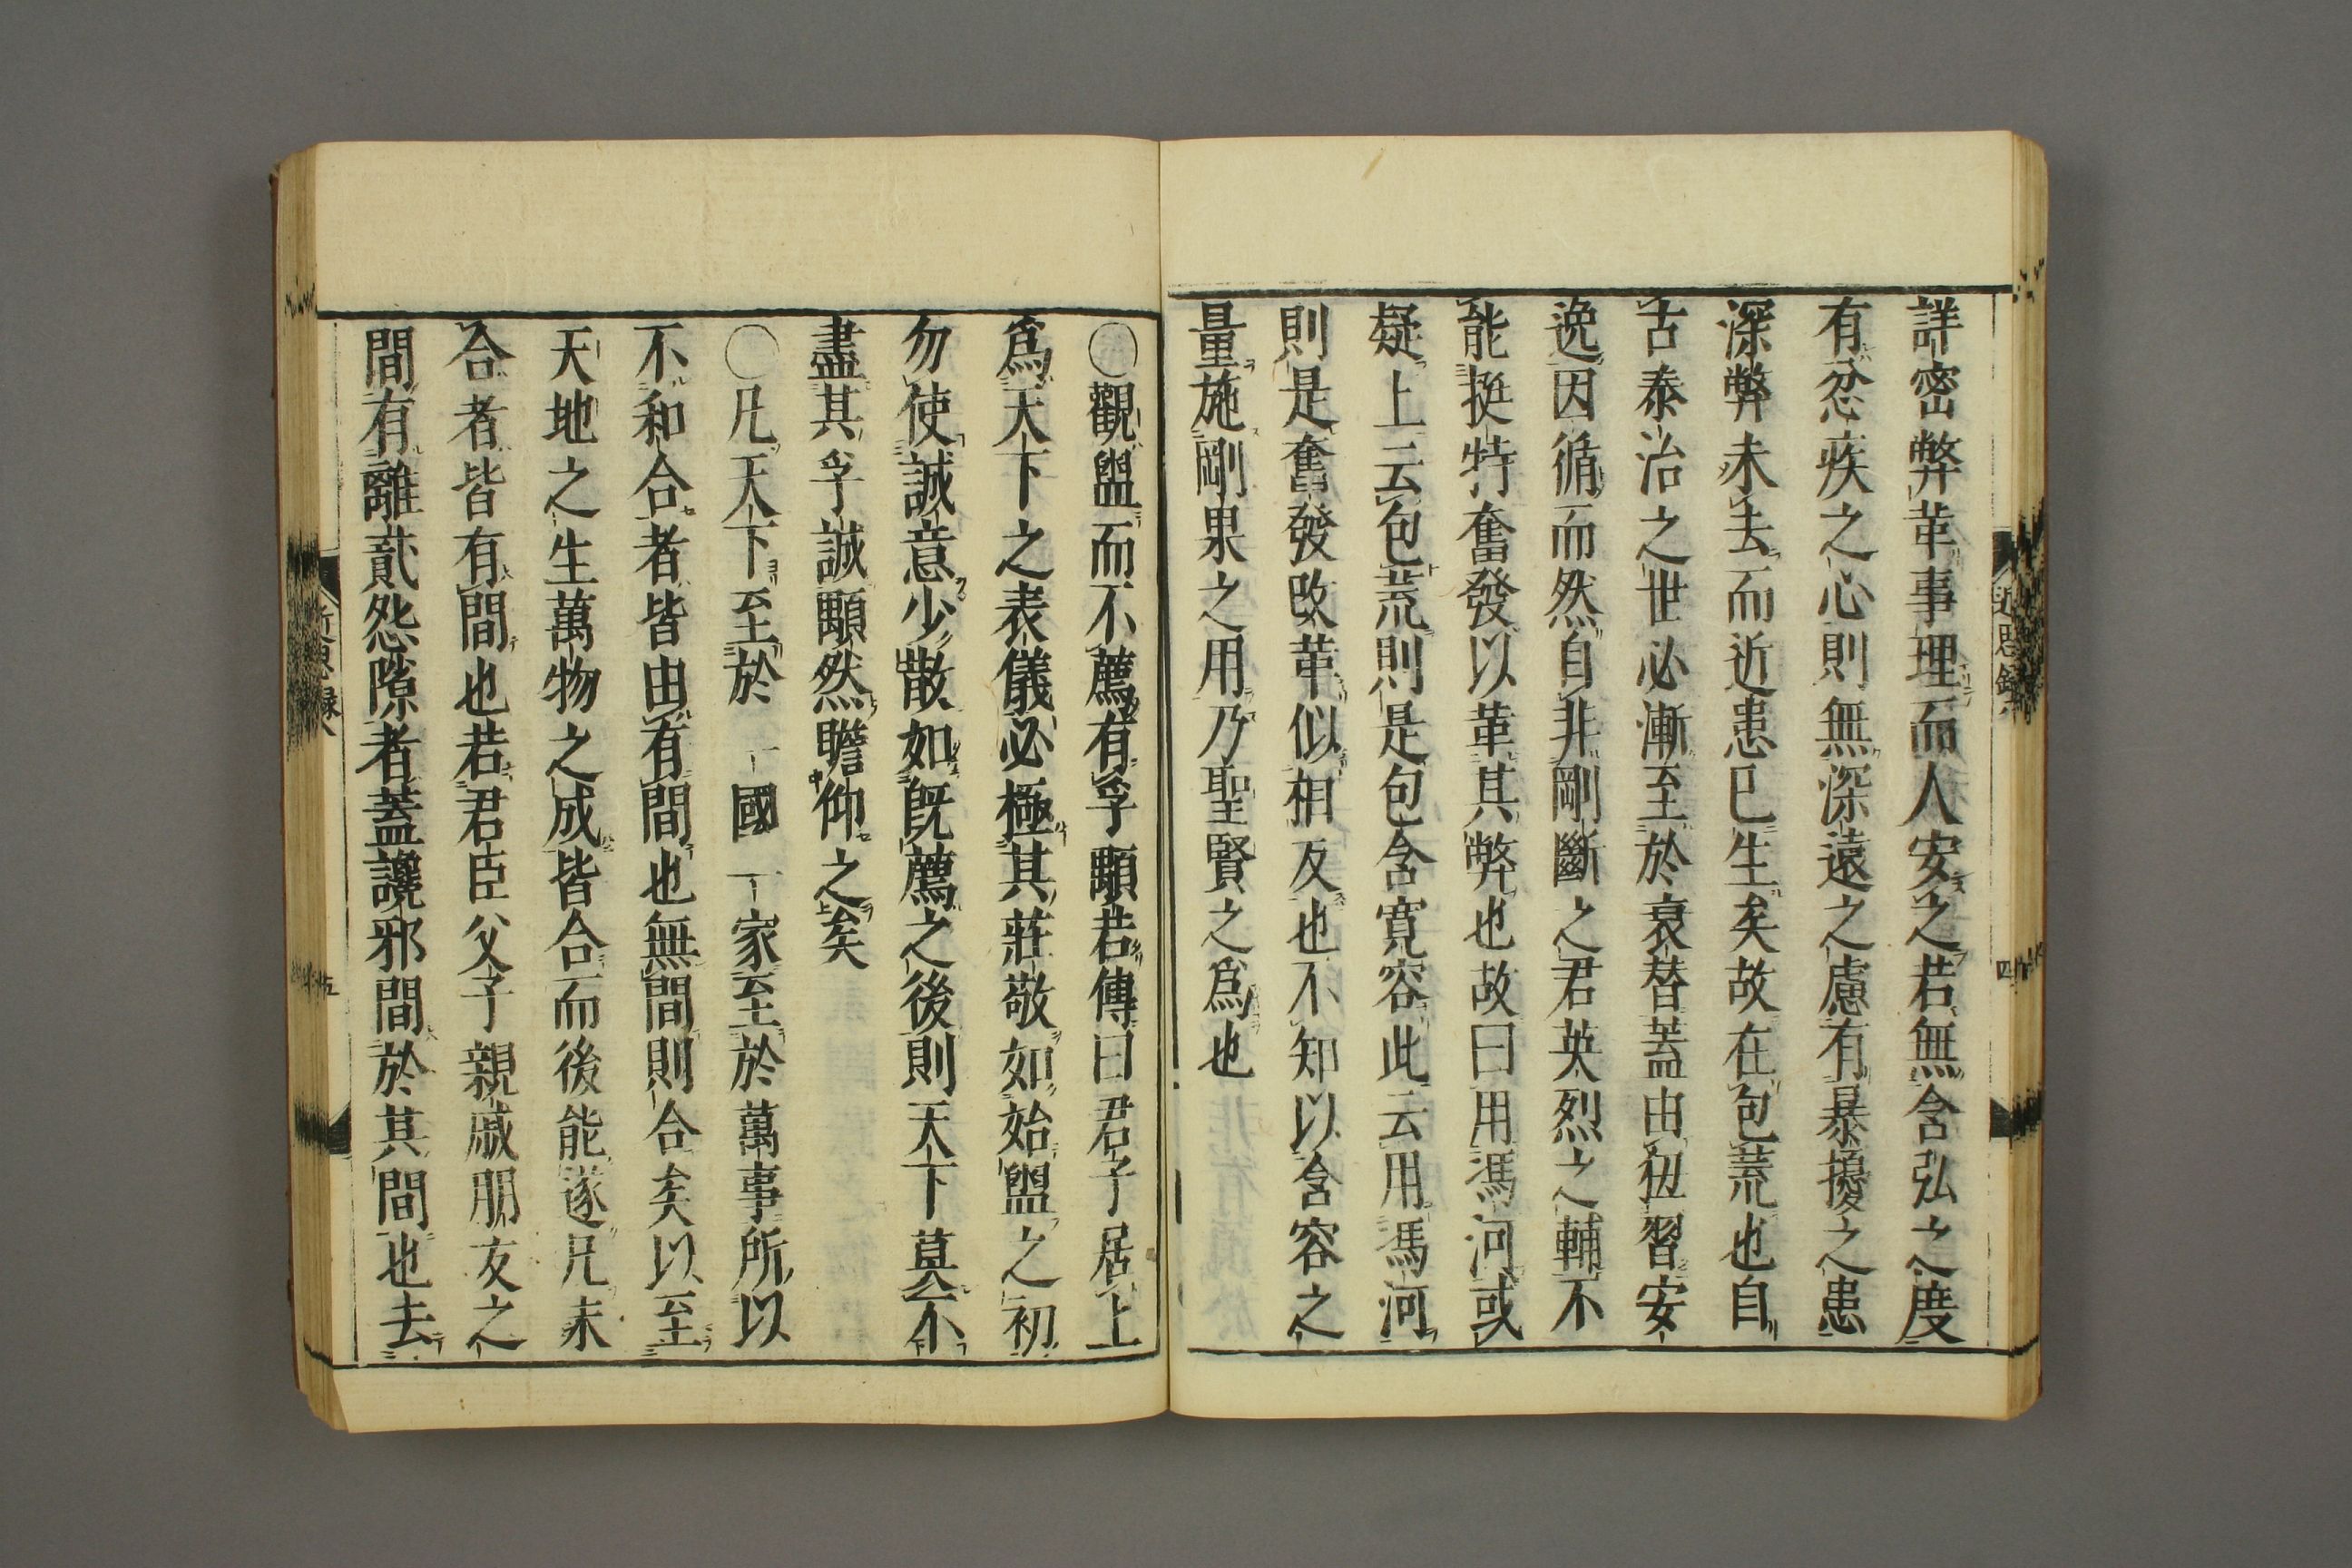 詳密弊革事理而人安之若無含弘之度
有忿疾之心則無深遠之慮有暴擾之患
深弊未去而近患已生矣故在包荒也自
古泰治之世必漸至於衰替蓋由狃習安
逸因循而然自非剛斷之君英烈之輔不
能挺特奮發以革其弊也故曰用馮河或
疑上云包荒則是包含寬容此云用馮河
則是奮發改革似相反也不知以含容之
量施剛果之用乃聖賢之爲也
○觀盥而不薦有孚顒若傳曰君子居上
爲天下之表儀必極其莊敬如始盥之初
勿使誠意少散如既薦之後則天下莫不
盡其孚誠顒然瞻仰之矣
○凡天下至於一國一家至於萬事所以
不和合者皆由有間也無間則合矣以至
天地之生萬物之成皆合而後能遂凡未
合者皆有間也若君臣父子親戚朋友之
間有離貳怨隙者蓋讒邪間於其間也去
近思錄八
四
近思錄八
五